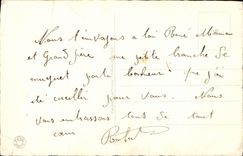 Nous t'envoyons a toi René Maman
et Grand père une petite branche de
muguet porte bonheur que j'ai
été cueillir pour vous. Nous
vous embrassons tous de tout
cœur Robert